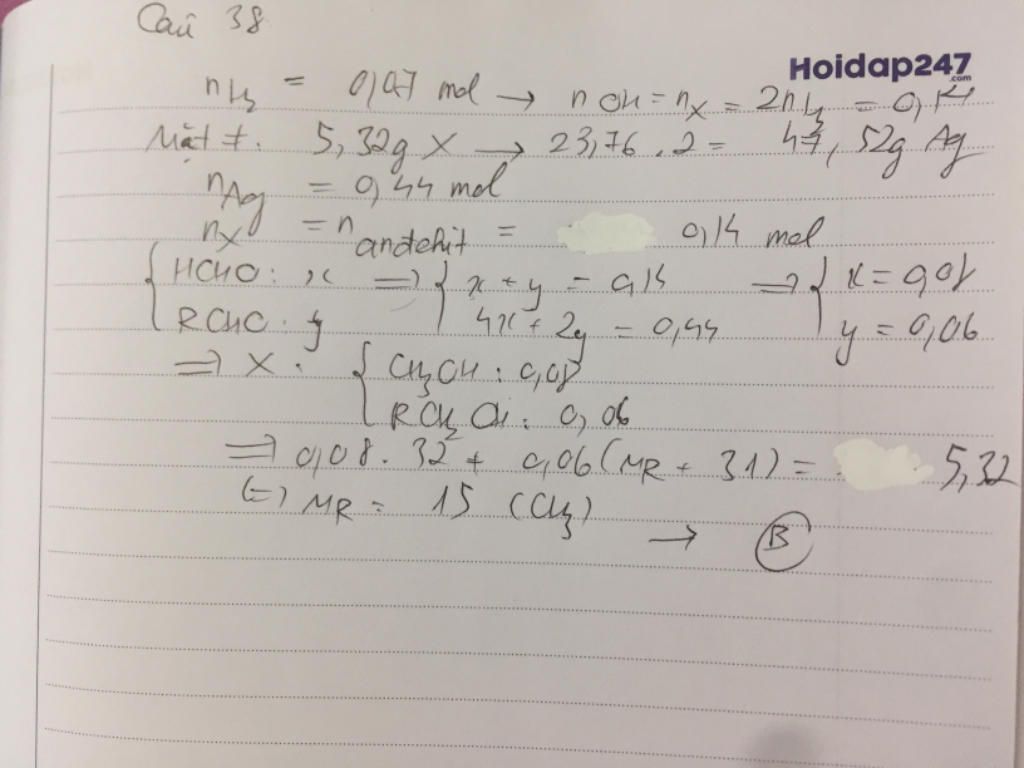 Câu 38
Hoidap247
.com
nH2 = 0,07 mol → nOH = nX = 2nH2 = 0,14
Mặt ≠. 5,32g X → 23,76 . 2 = 47,52g Ag
nAg = 0,44 mol
nX = n andehit = 0,14 mol
{ HCHO : x => { x + y = 0,14 => { x = 0,08
RCHO : y 4x + 2y = 0,44 y = 0,06
=> X : { CH3OH : 0,08
RCH2OH : 0,06
=> 0,08 . 32 + 0,06(MR + 31) = 5,32
(=) MR = 15 (CH3)
→ B